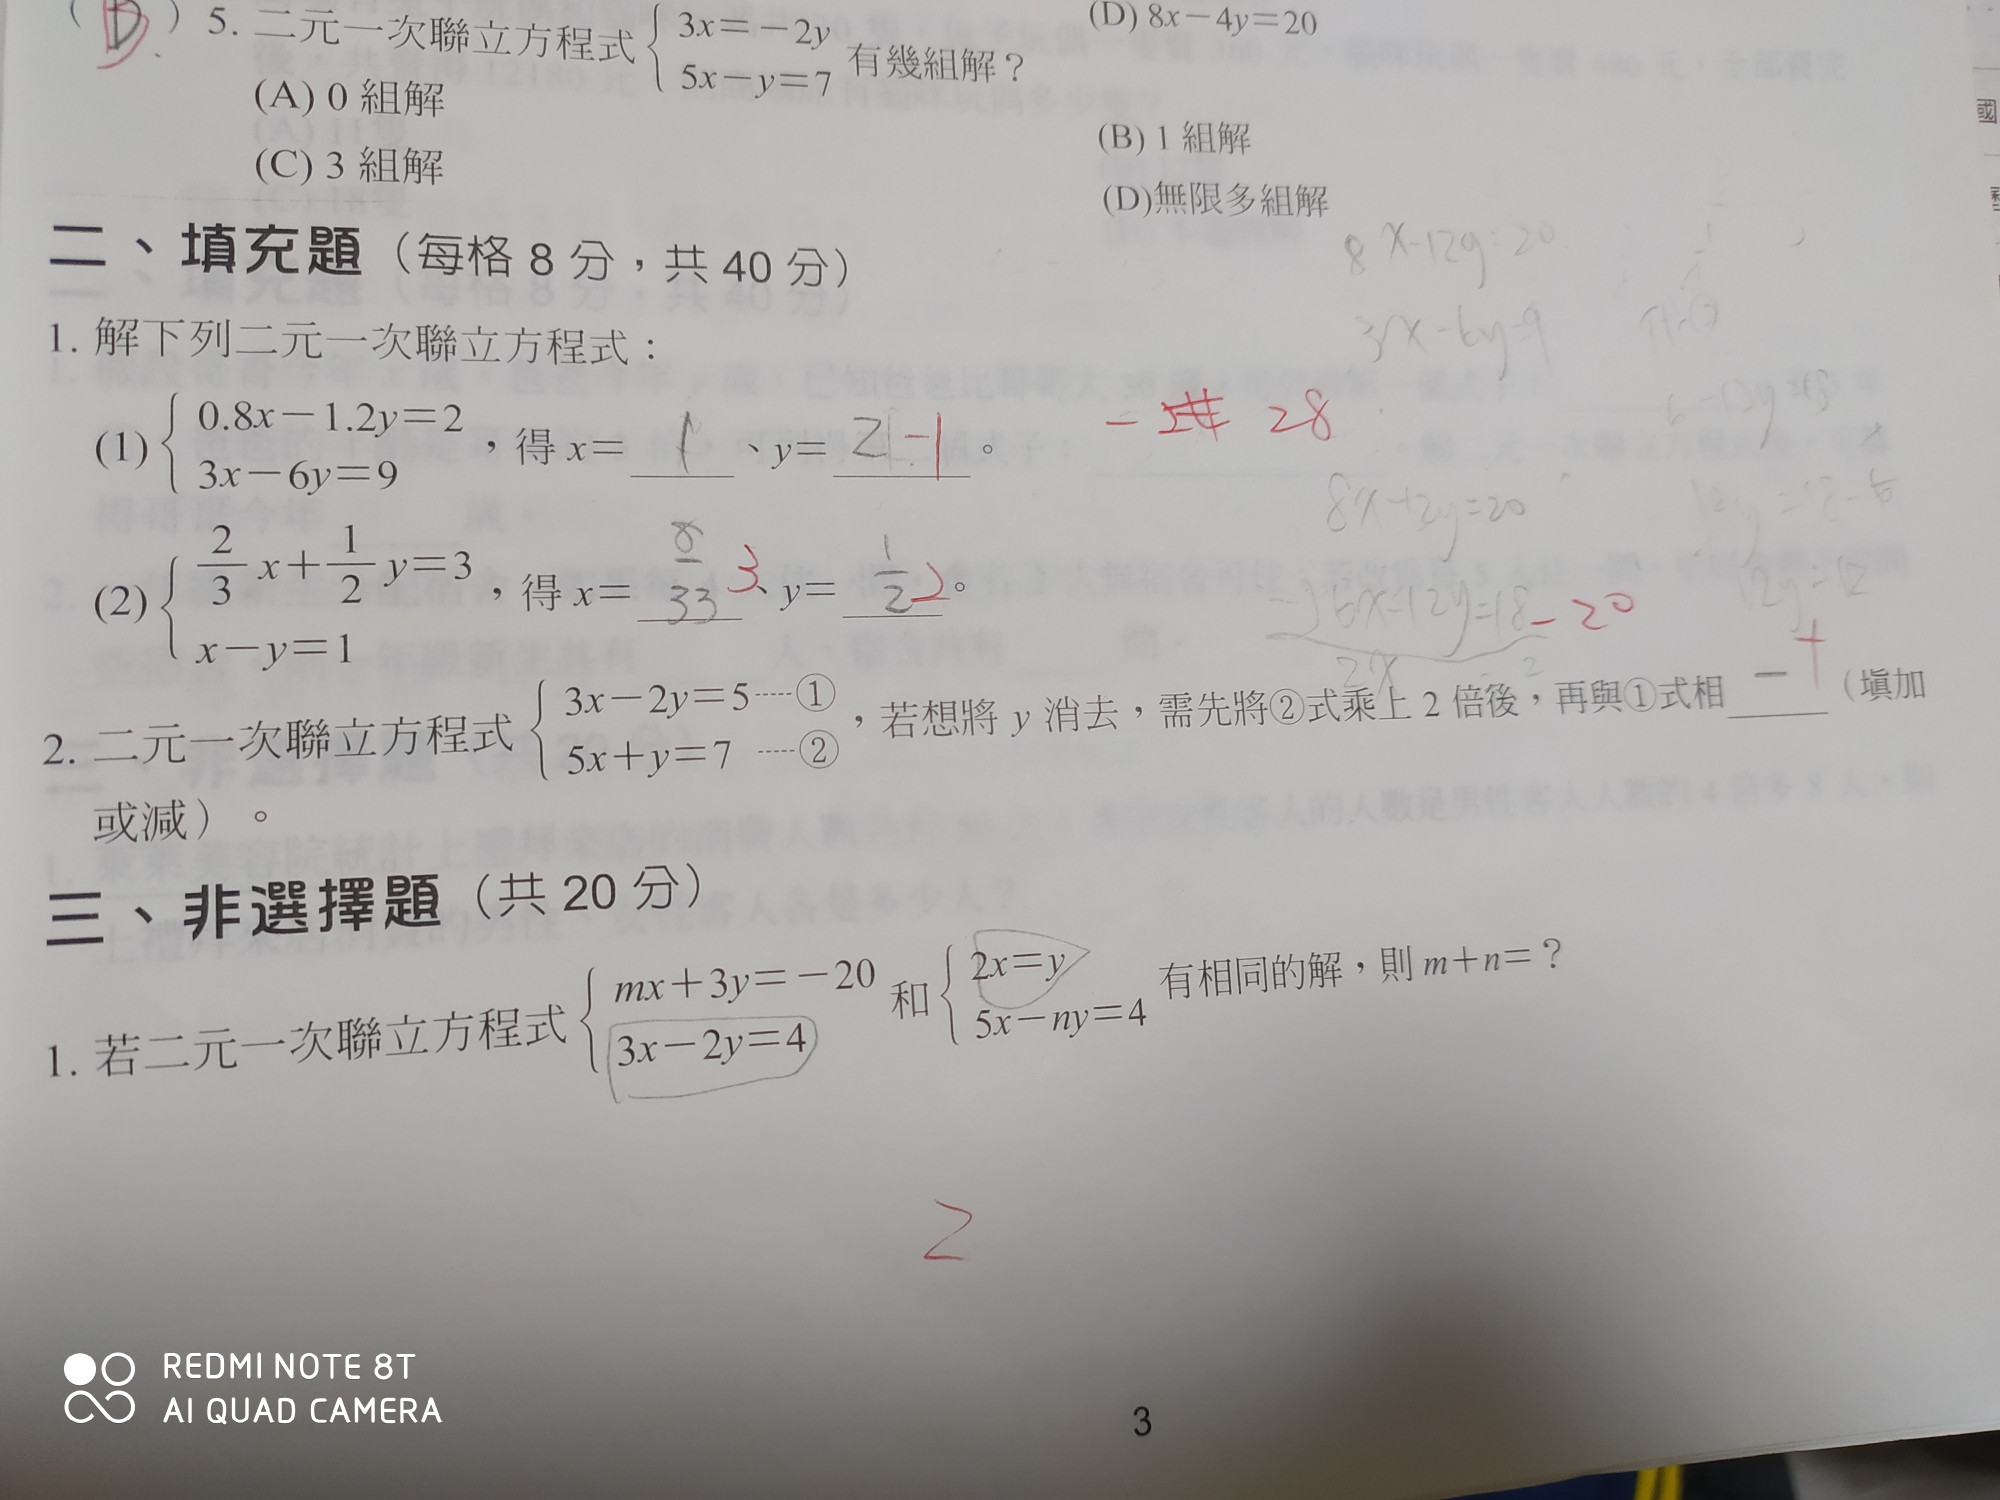 (D) 8x－4y＝20
( B ) 5. 二元一次聯立方程式 { 3x＝－2y 5x－y＝7 有幾組解？
(A) 0 組解
(B) 1 組解
(C) 3 組解
(D)無限多組解
二、填充題（每格 8 分，共 40 分）
8x-12y=20
3x-6y=9
1. 解下列二元一次聯立方程式：
(1) { 0.8x－1.2y＝2 3x－6y＝9 ，得 x＝ 1 、y＝ 2 -1 。
- 28
8x-12y=20
(2) { 2/3 x＋1/2 y＝3 x－y＝1 ，得 x＝ 8/33 3 、y＝ 1/2 2 。
-) 6x-12y=18
-20
12y=12
2x 2
2. 二元一次聯立方程式 { 3x－2y＝5 ······① 5x＋y＝7 ······② ，若想將 y 消去，需先將②式乘上 2 倍後，再與①式相 - + （填加
或減）。
三、非選擇題（共 20 分）
1. 若二元一次聯立方程式 { mx＋3y＝－20 3x－2y＝4 和 { 2x＝y 5x－ny＝4 有相同的解，則 m＋n＝？
2
REDMI NOTE 8T
AI QUAD CAMERA
3